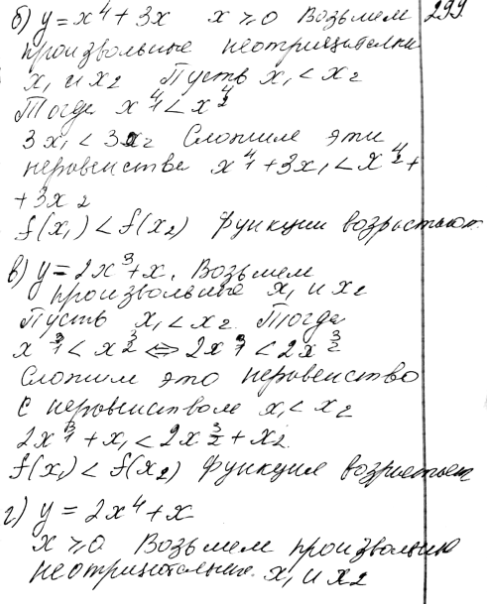 б) y = x⁴ + 3x   x ⩾ 0 Возьмем 299
произвольные неотрицательн
x₁ и x₂ Пусть x₁ < x₂
Тогда x₁⁴ < x₂⁴
3x₁ < 3x₂ Сложиле эти
неравенстве x₁⁴ + 3x₁ < x₂⁴ +
+ 3x₂
f(x₁) < f(x₂) функции возрастают
в) y = 2x³ + x. Возьмем
произвольные x₁ и x₂
Пусть x₁ < x₂. Тогда
x₁³ < x₂³ ⇔ 2x₁³ < 2x₂³
Сложим это неравенство
с неравенством x₁ < x₂
2x₁³ + x₁ < 2x₂³ + x₂
f(x₁) < f(x₂) функция возрастает
г) y = 2x⁴ + x
x ⩾ 0 Возьмем произвольно
неотрицательные x₁ и x₂